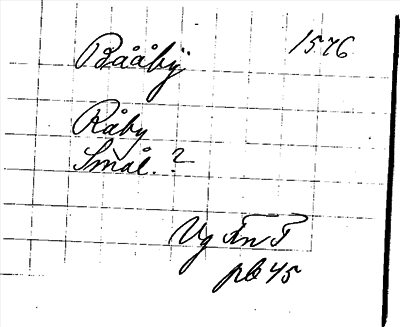 Bååbÿ 1576
Råby
Smål. ?
Vg Än I
pb 45